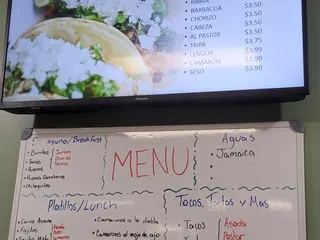 BIRRIA $3.50
BARBACOA $3.50
CHORIZO $3.50
CABEZA $3.50
AL PASTOR $3.50
TRIPA $3.75
LENGUA $3.99
CAMARÓN $3.99
SESO $3.99
/Breakfast
• Burritos
• Tacos
• Huevos
• Huevos Rancheros
• Chilaquiles
MENU
Aguas
• Jamaica
Platillos/Lunch
• Carne Asada
• Fajitas
• Camarones a la diabla
• Camarones al mojo de ajo
Tacos, Tortas y Mas
• Tacos
Asada
Pastor